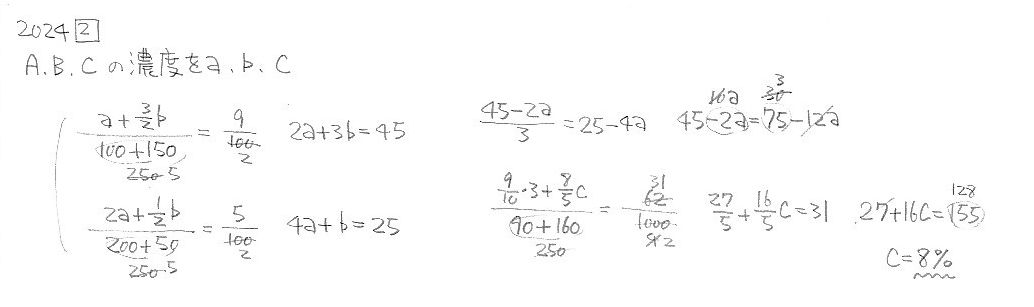 2024 [2]
A.B.Cの濃度をa.b.C
(a+3/2b)/(100+150) = 9/100 2a+3b=45
250 5 2
(2a+1/2b)/(200+50) = 5/100 4a+b=25
250 5 2
(45-2a)/3 = 25-4a 45-2a=75-12a
10a 30 3
(9/10・3+8/5C)/(90+160) = 62/1000 27/5+16/5C=31 27+16C=155
250 31 2 128
C=8%